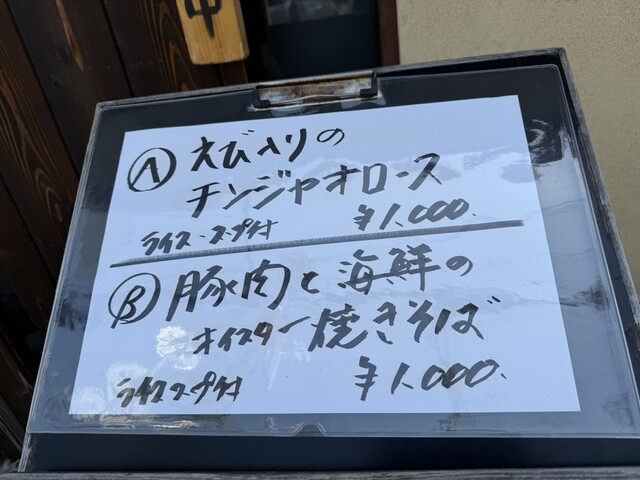 中
Ⓐ えび入りの
チンジャオロース
ライス・スープ付 ¥1,000.
Ⓑ 豚肉と海鮮の
オイスター焼きそば
ライススープ付 ¥1,000.